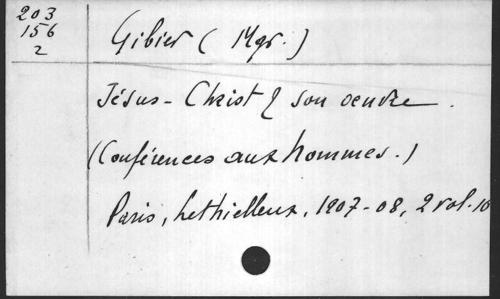 203
156
2
Gibier ( Mgr. )
Jésus - Christ & son oeuvre .
(Conférences aux hommes.)
Paris, Lethielleux, 1907-08, 2 vol. 16